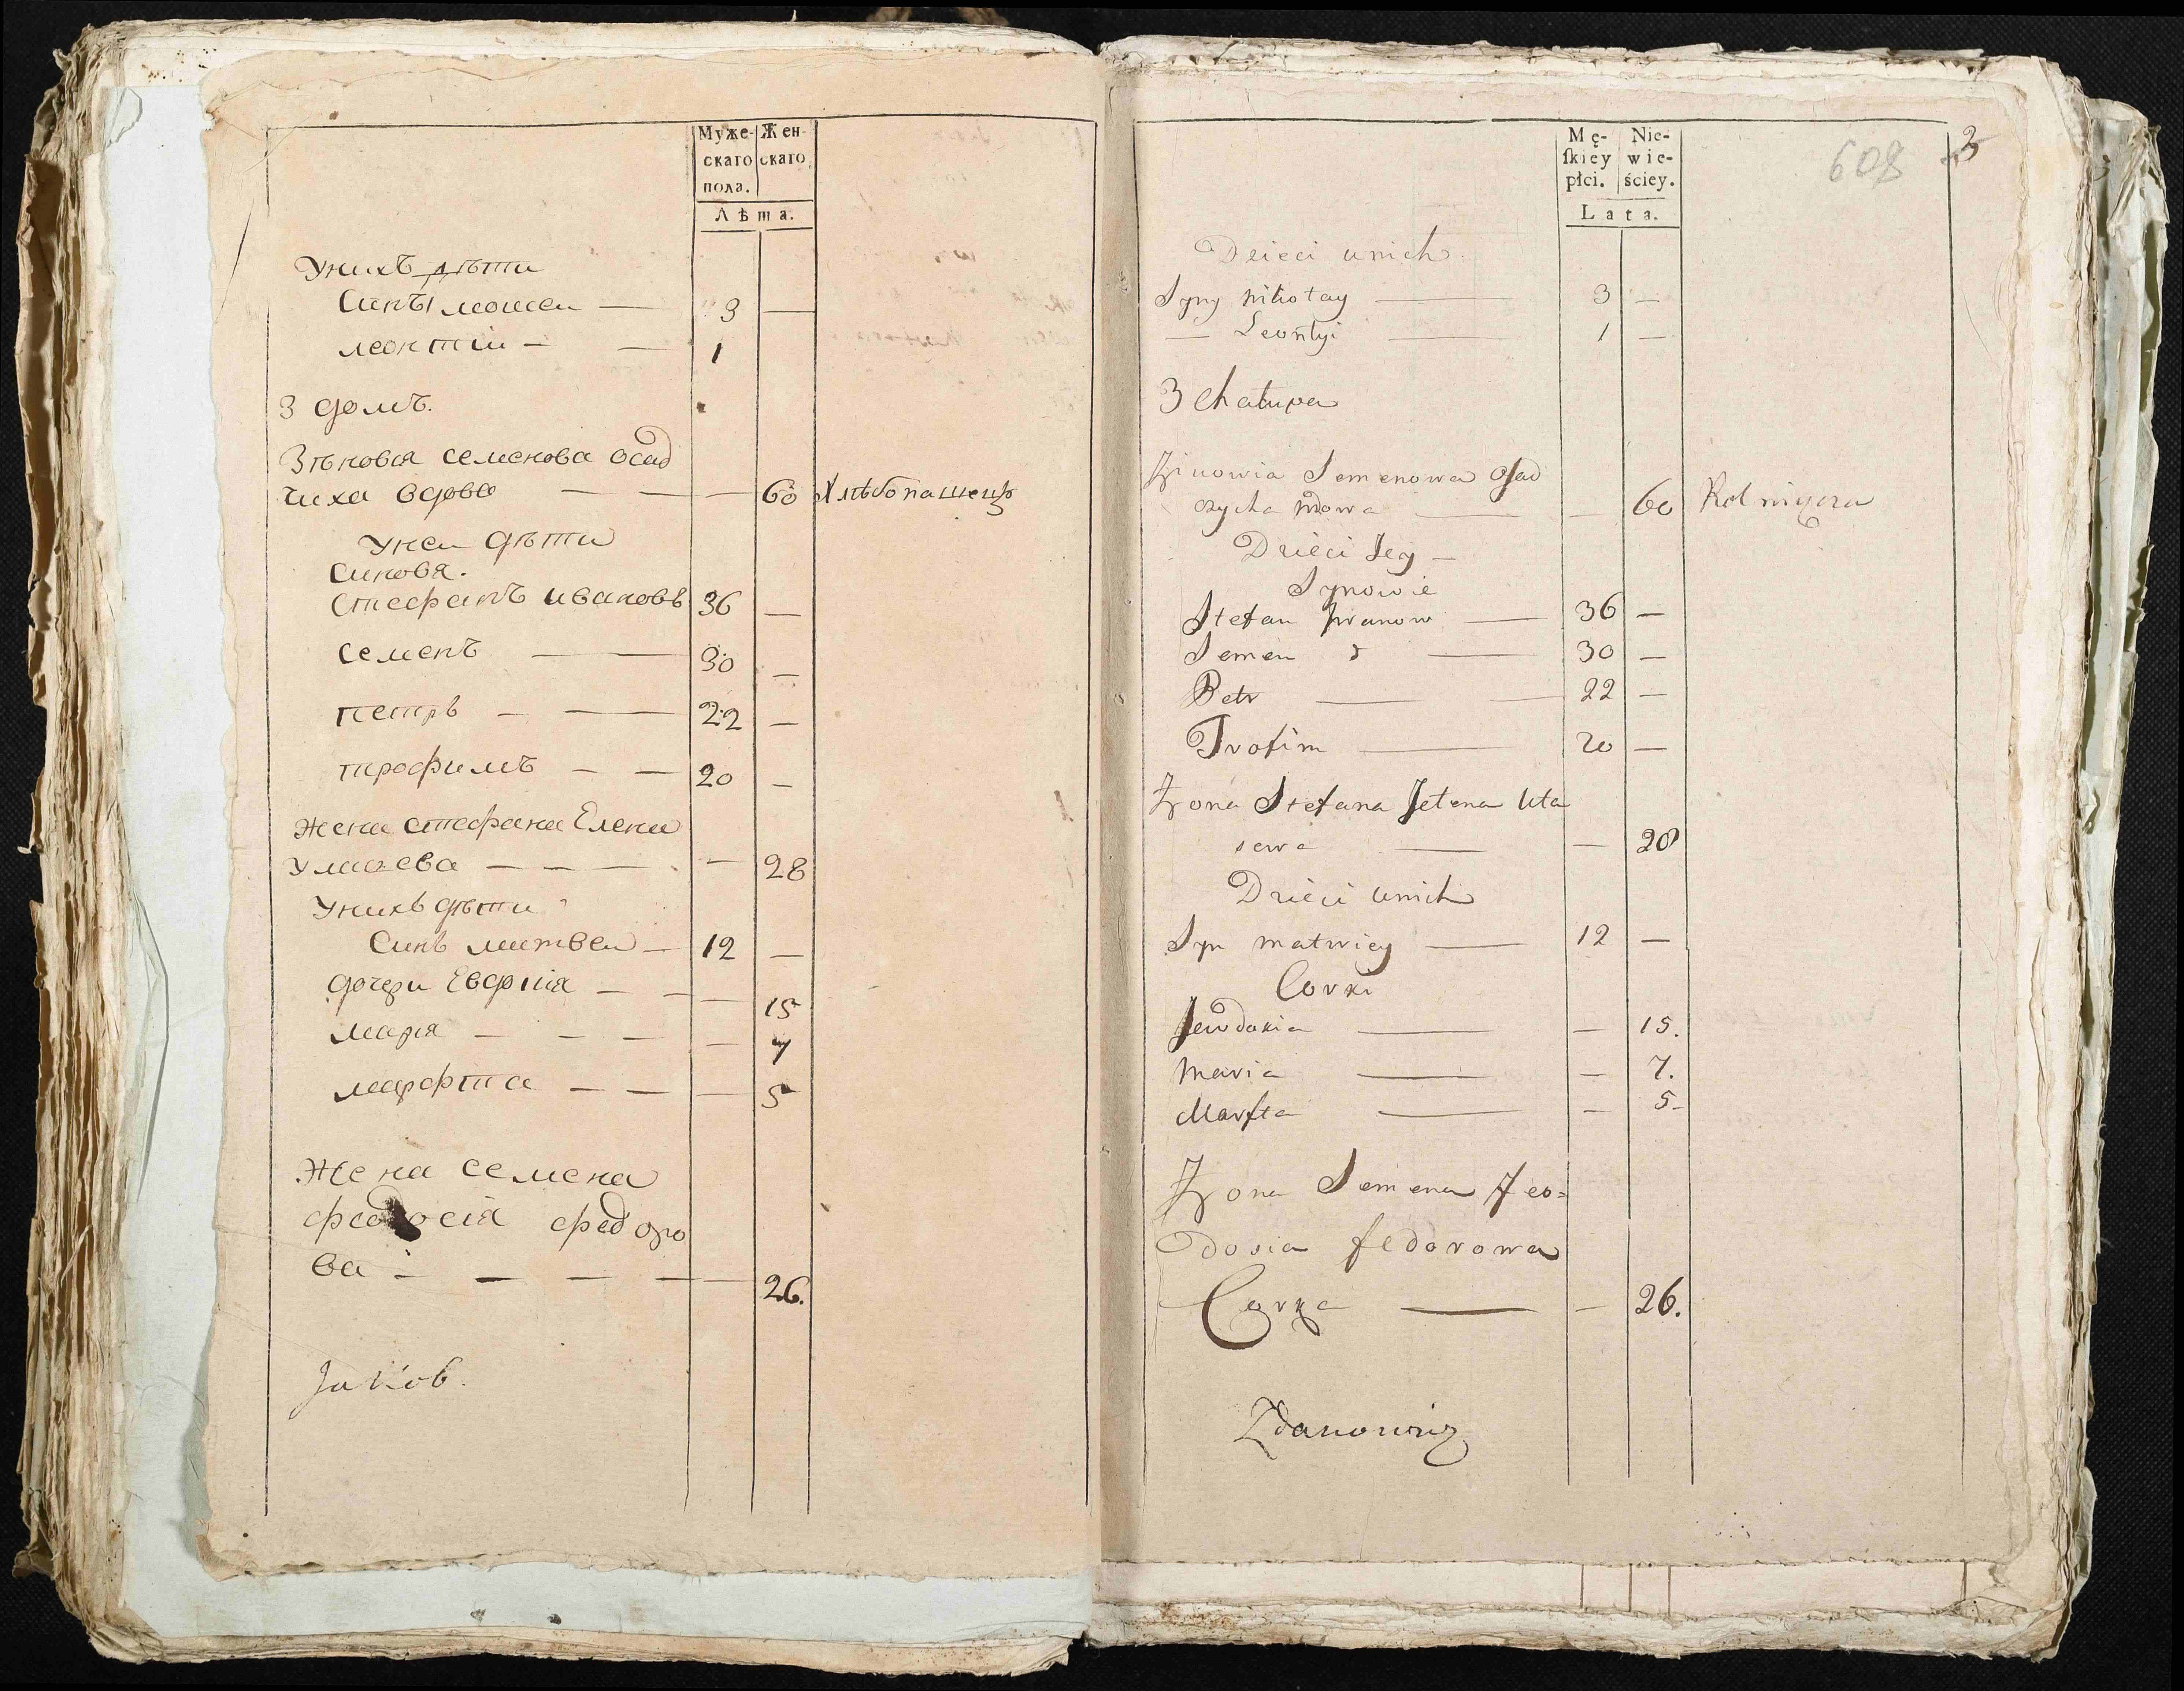 Муже-
скаго
пола.
Жен
скаго
Лѣта.
Унихъ дѣти
Синъı — 3 —
леонтіи — — 1
3 домъ.
Зѣновія семенова осад
чиха вдова — — — 60 Хлѣбопашецъ
Унеи дѣти
Синовя.
Стефанъ ивановъ 36 —
семенъ — 30 —
петръ — — 22 —
трофимъ — — 20 —
Жена стефана Елена
— — — — 28
Унихъ дѣти
Синъ матвеи — 12 —
дочери Евдокія — — — 15
марія — — — — 7
марфта — — — 5
Жена семена
феодосія федоро
ва — — — — — 26.
Jakób.
Mę-
ſkiey
płci.
Nie-
wie-
ściey.
Lata.
608
3
Dzieci unich
Syny Nikołay — 3 —
— Leontyi — 1 —
3 Chałupa
Zinowia Semenowa Osad
czycha wdowa — — 60 Rolnicza
Dzieci Jey —
Synowie
Stefan Iwanow — 36 —
Semen — 30 —
Petr — — 22 —
Trofim — 20 —
Żona Stefana Jelena
— — 28
Dzieci unich
Syn matwiey — 12 —
Corki
Jewdokia — — 15.
Maria — — 7.
Marfta — — 5-
Żona Semena Feo=
dosia fedorowa
Corka — — 26.
Zdanowicz